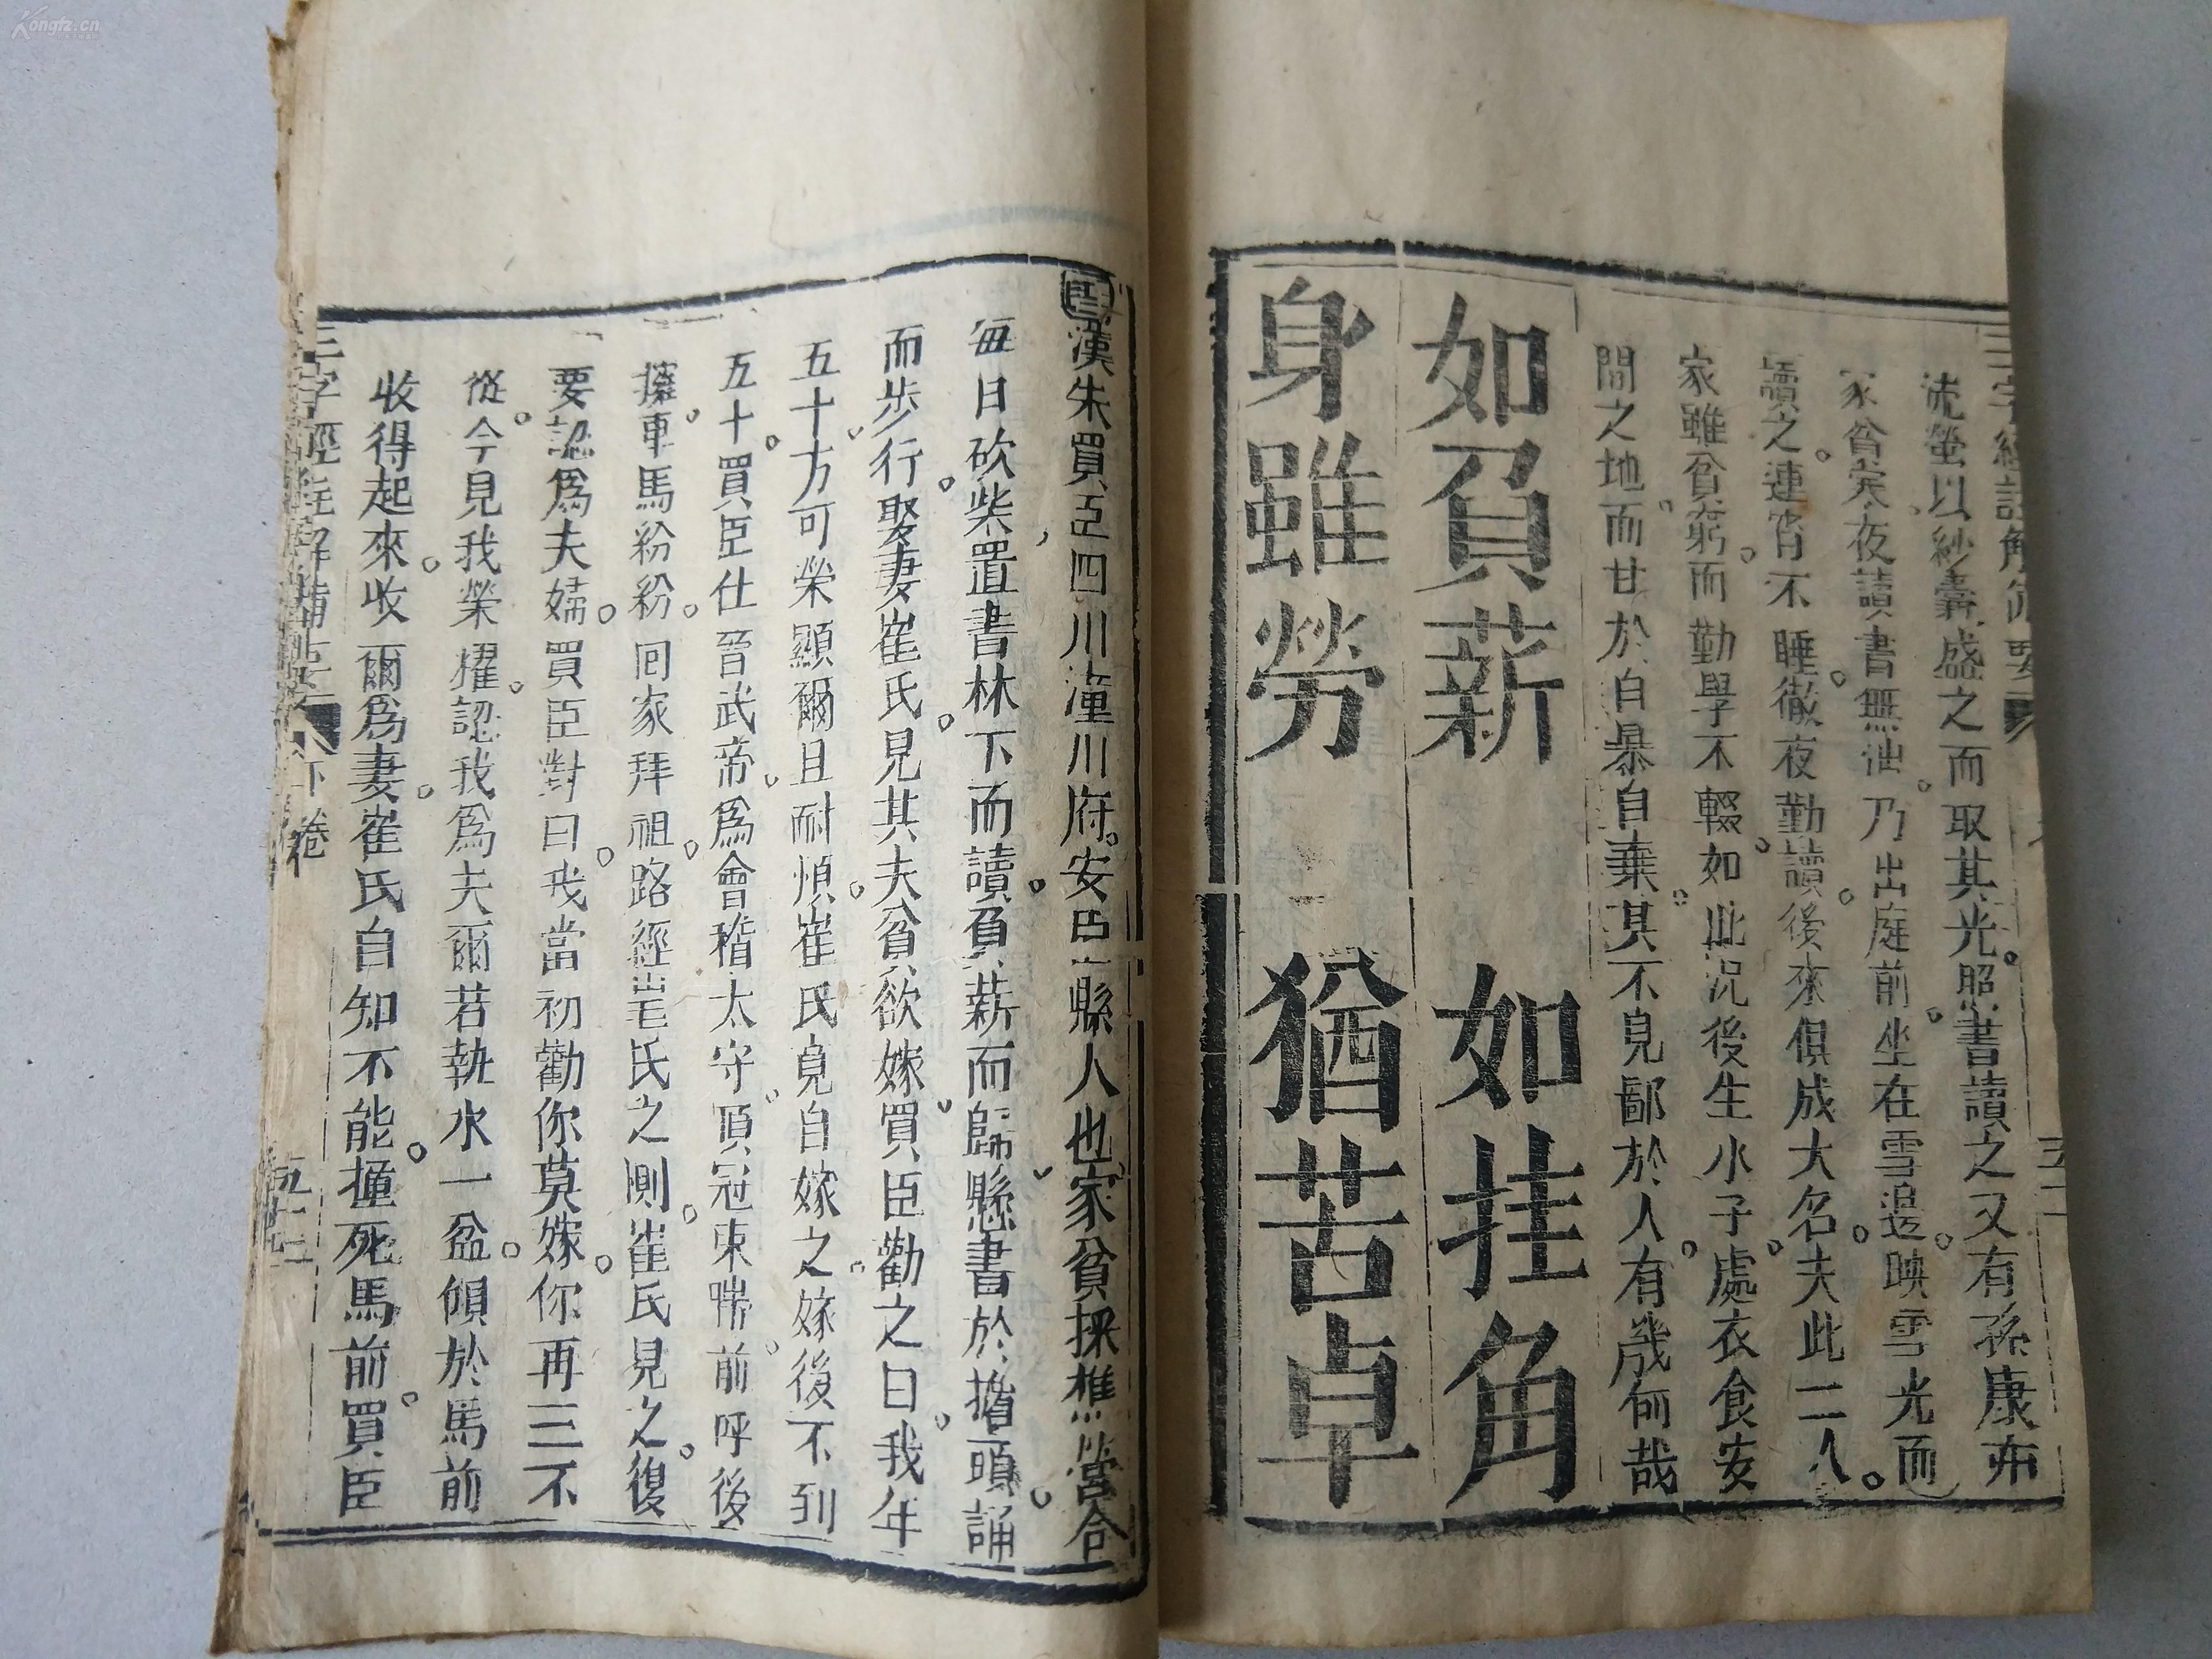 三字經註解備要
流螢以紗囊盛之而取其光照書讀之又有孫康亦
家貧矣夜讀書無油乃出庭前坐在雪邊映雪光而
讀之連宵不睡徹夜勤讀後來俱成大名夫此二人
家雖貧窮而勤學不輟如此況後生小子處衣食安
閒之地而甘於自暴自棄其不見鄙於人有幾何哉
如負薪 如挂角
身雖勞 猶苦卓
漢朱買臣四川潼川府安岳縣人也家貧採樵營食
每日砍柴置書林下而讀負薪而歸懸書於擔頭誦
而步行娶妻崔氏見其夫貧欲嫁買臣勸之曰我年
五十方可榮顯爾且耐煩崔氏竟自嫁之嫁後不到
五十買臣仕晉武帝為會稽太守頂冠束帶前呼後
擁車馬紛紛囘家拜祖路經崔氏之側崔氏見之復
要認為夫婦買臣對曰我當初勸你莫嫁你再三不
從今見我榮耀認我為夫爾若執水一盆傾於馬前
收得起來收爾為妻崔氏自知不能撞死馬前買臣
三字經註解備要 下卷
Kongfz.cn